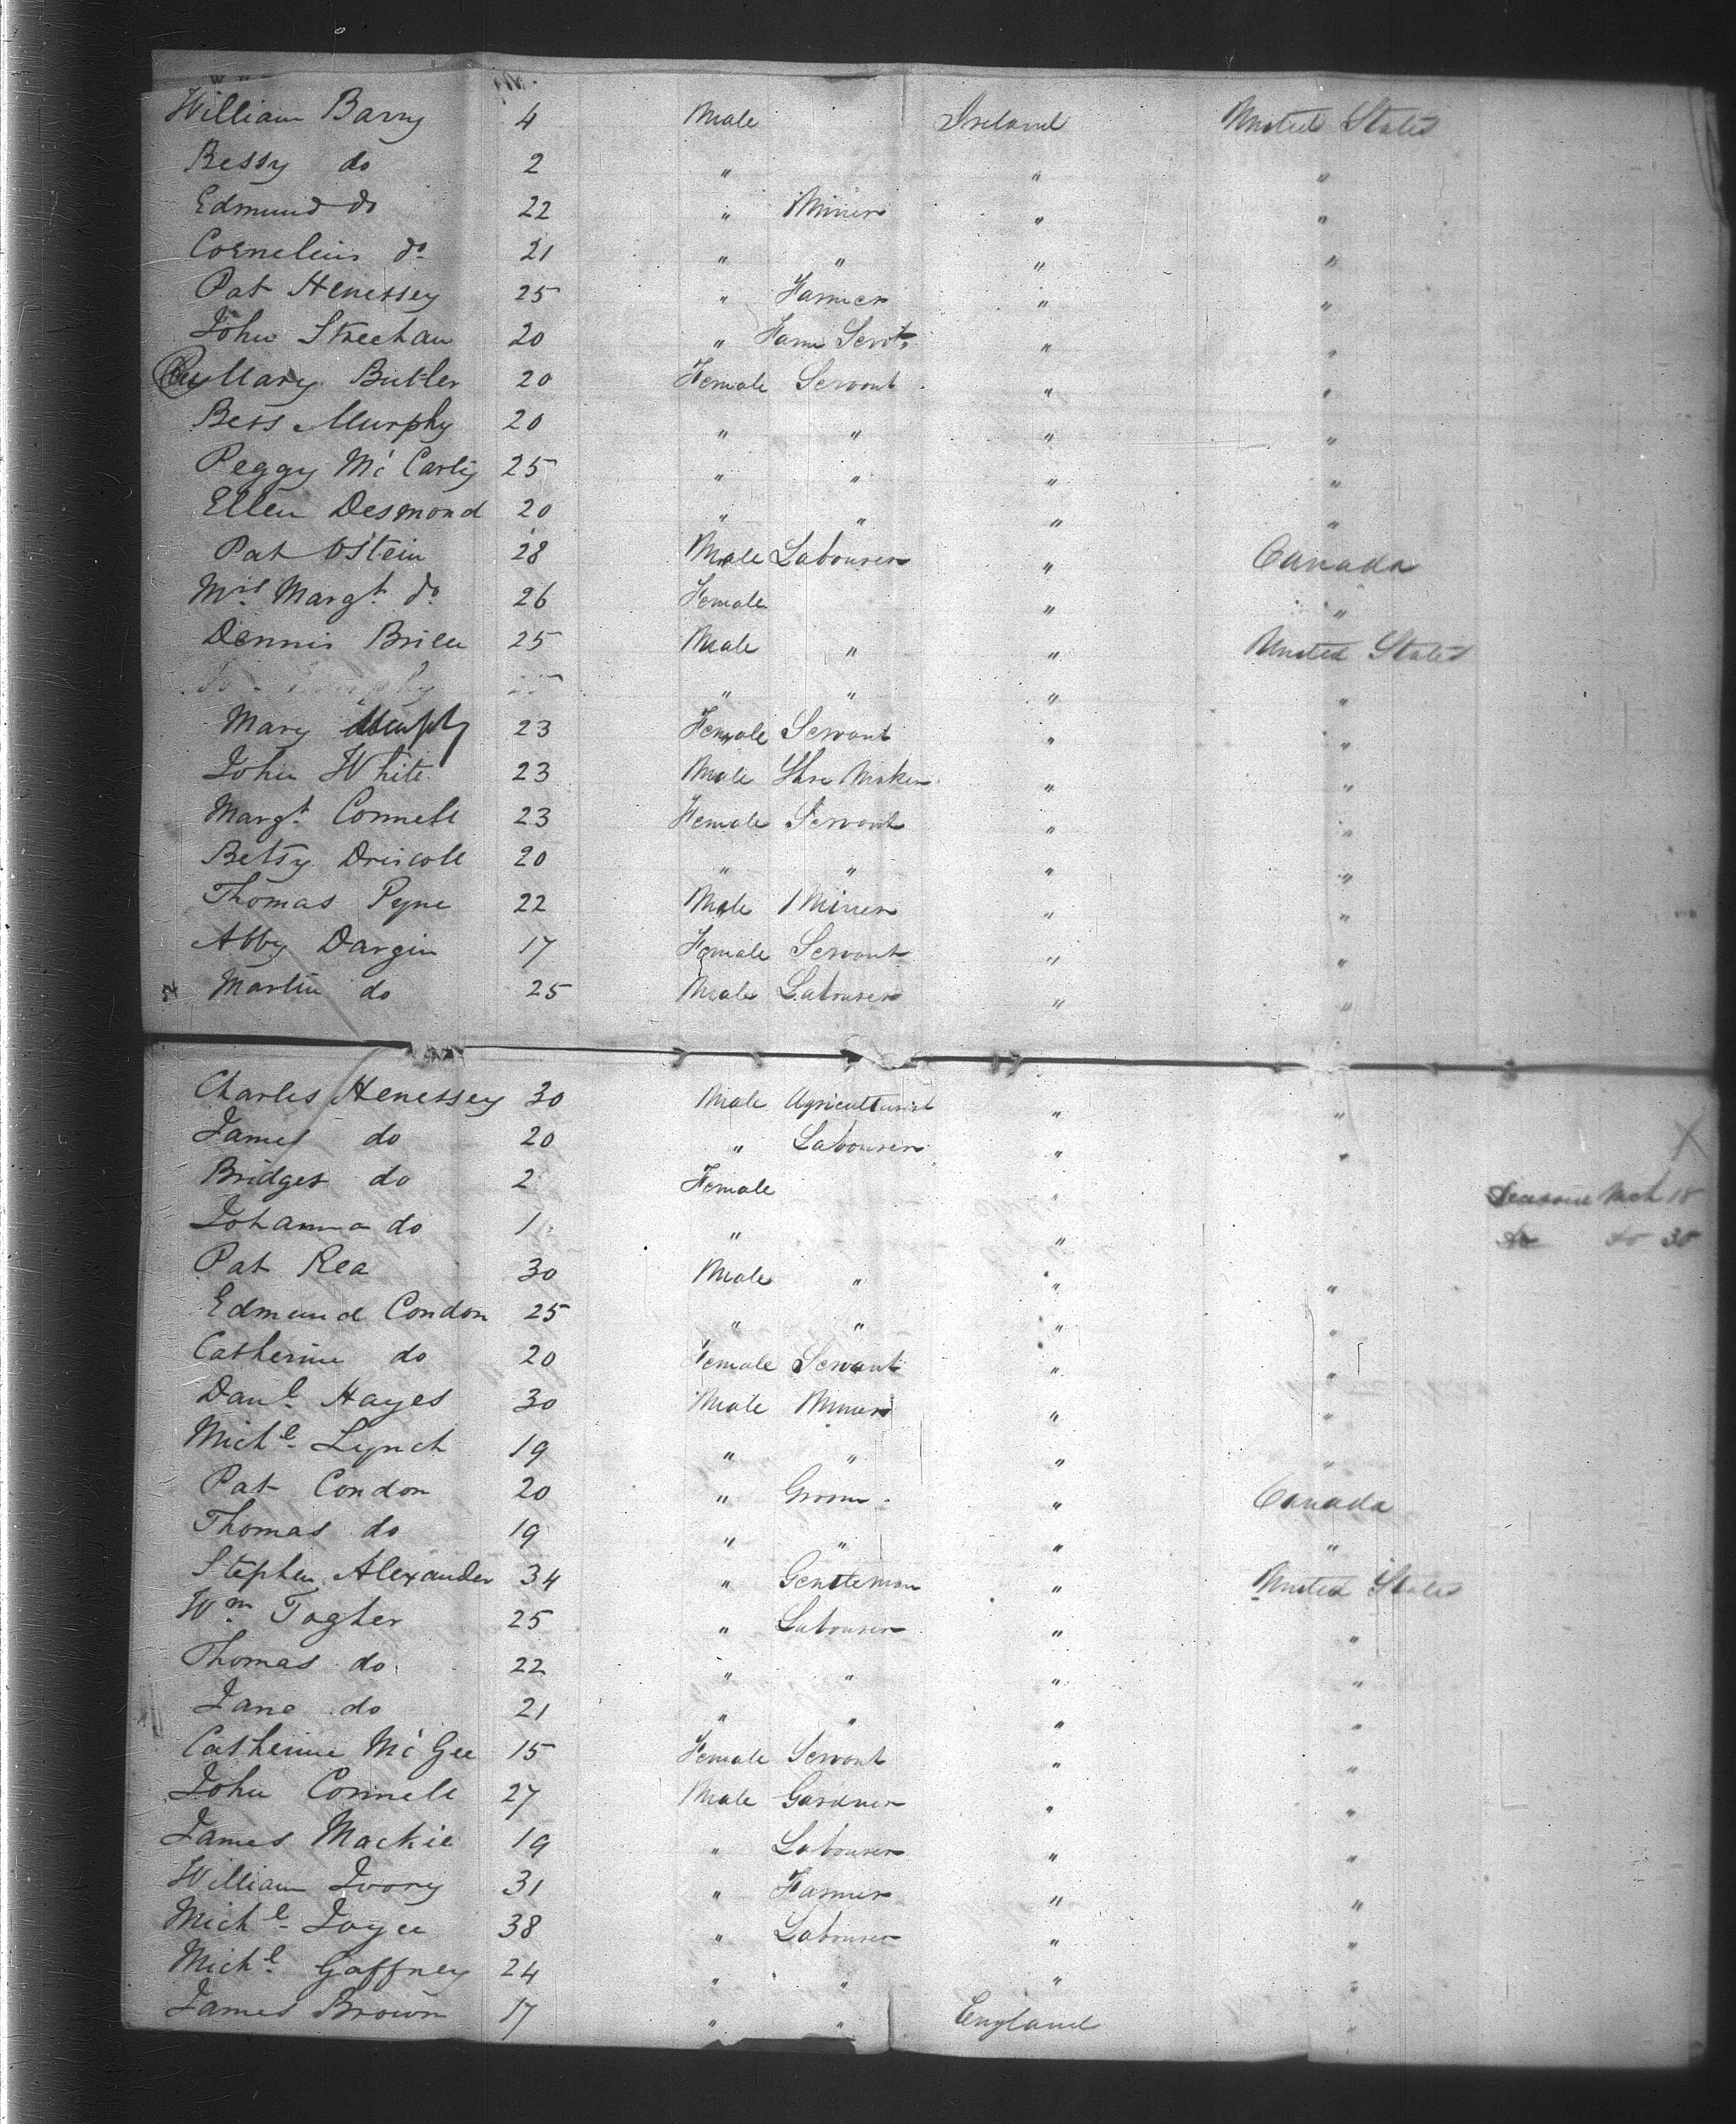 William Barry 4 Male Ireland United States
Bessy do 2 " " "
Edmund do 22 " Miner " "
Cornelius do 21 " " " "
Pat Henessey 25 " Farmer " "
John Sheehan 20 " Farm Servt. " "
Mary Butler 20 Female Servant " "
Bess Murphy 20 " " " "
Peggy Mc Carty 25 " " " "
Ellen Desmond 20 " " " "
Pat 28 Male Labourer " Canada
Mrs. Margt. do 26 Female " "
Dennis Brien 25 Male " " United States
" " " "
Mary Murphy 23 Female Servant " "
John White 23 Male Shoe Maker " "
Margt. Connell 23 Female Servant " "
Betsy Driscoll 20 " " " "
Thomas Pyne 22 Male Miner " "
Abby Dargin 17 Female Servant " "
Martin do 25 Male Labourer " "
Charles Henessey 30 Male Agriculturist " "
James do 20 " Labourer " "
Bridget do 2 Female " Mch 18
Johanna do 1 " " do do 30
Pat Rea 30 Male " " "
Edmund Condon 25 " " " "
Catherine do 20 Female Servant " "
Danl. Hayes 30 Male Miner " "
Michl. Lynch 19 " " " "
Pat Condon 20 " Groom " Canada
Thomas do 19 " " " "
Stephen Alexander 34 " Gentleman " United States
Wm. Togher 25 " Labourer " "
Thomas do. 22 " " " "
Jane do 21 " " " "
Catherine Mc Gee 15 Female Servant " "
John Connell 27 Male Gardner " "
James Mackie 19 " Labourer " "
William Ivory 31 " Farmer " "
Michl. Joyce 38 " Labourer " "
Michl. Gaffney 24 " " " "
James Brown 17 " " England "